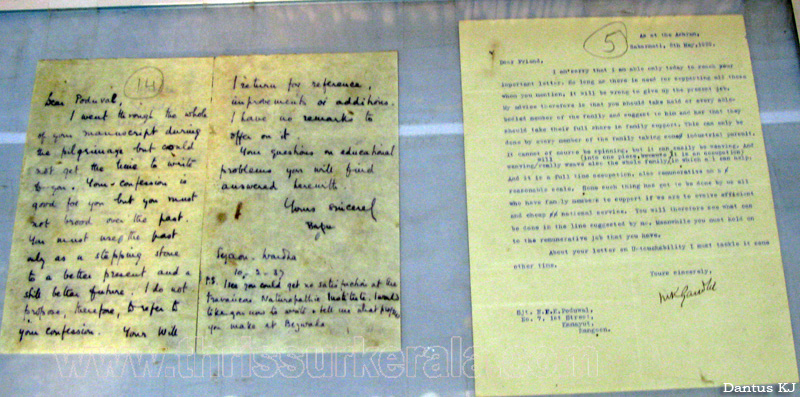 14
Dear Poduval,
I went through the whole
of your manuscript during
the pilgrimage but could
not get the time to write
to you. Your confession is
good for you but you must
not brood over the past.
You must use the past
only as a stepping stone
to a better present and a
still better future. I do not
propose, therefore, to refer to
your confession. Your Will
I return for reference,
improvements or additions.
I have no remarks to
offer on it.
Your questions on educational
problems you will find
answered herewith.
Yours sincerely
Bapu
Segaon-Wardha
10-2-37
P.S. I see you could get no satisfaction at the
Travancore Naturopathic Institute. I would
like you now to write & tell me what progress
you make at Bezwada
5
As at the Ashram,
Sabarmati, 9th May,
Dear Friend,
I am sorry that I am able only today to reach your
important letter. So long as there is need for supporting all those
whom you mention, it will be wrong to give up the present job.
My advice therefore is that you should take hold of every able-
bodied member of the family and suggest to him and her that they
should take their full share in family support. This can only be
done by every member of the family taking some industrial pursuit.
It cannot of course be spinning, but it can easily be weaving. And
will (into one piece, because it is an occupation)
weaving/family weave also the whole family/in which all can help.
And it is a full time occupation, also remunerative on a
reasonable scale. Some such thing has got to be done by us all
who have family members to support if we are to evolve efficient
and cheap national service. You will therefore see what can
be done in the line suggested by me. Meanwhile you must hold on
to the remunerative job that you have.
About your letter on Untouchability I must tackle it some
other time.
Yours sincerely,
MKGandhi
Sjt. Poduval,
No. 7, 1st Street,
Rangoon.
www.thrissurkerala.com
Dantus KJ